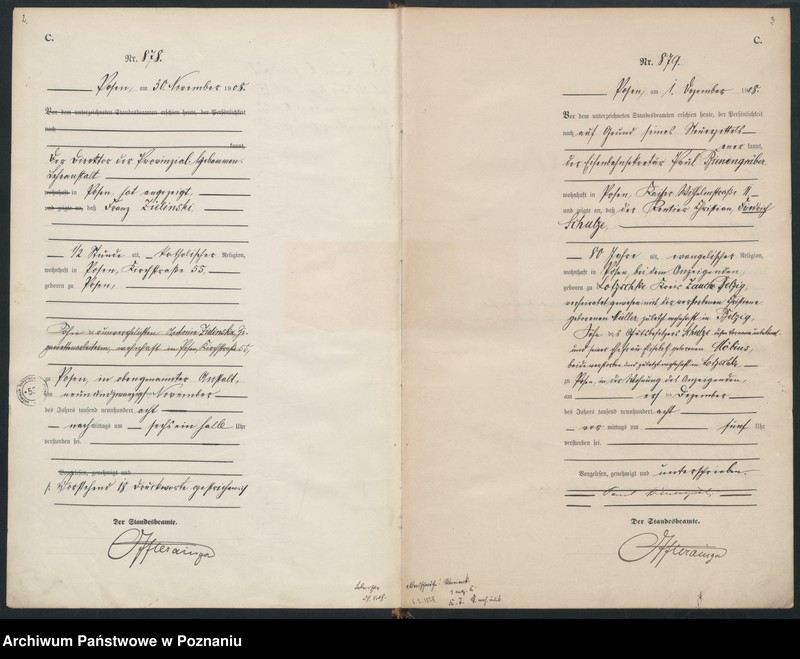 2.
C.
Nr. 878.
Posen, am 30. November 1908.
Vor dem unterzeichneten Standesbeamten erschien heute, der Persönlichkeit
nach
kannt,
Der Direktor der Provinzial-Hebammen-
Lehranstalt
wohnhaft in Posen hat angezeigt,
und zeigte an, daß Franz Zielinski
1/2 Stunde alt, katholischer Religion,
wohnhaft in Posen, Kirchstraße 55,
geboren zu Posen,
Sohn der unverehelichten Antonie Zielinska,
wohnhaft in Posen, Kirchstraße 55,
zu Posen, in obengenannter Anstalt,
am neunundzwanzigsten November
des Jahres tausend neunhundert acht
nachmittags um sechseinhalb Uhr
verstorben sei.
Vorgelesen, genehmigt und
Vorstehend 18 Druckworte gestrichen.
Der Standesbeamte.
3
C.
Nr. 879.
Posen, am 1. Dezember 1908.
Vor dem unterzeichneten Standesbeamten erschien heute, der Persönlichkeit
nach auf Grund seines Steuerzettels
kannt,
der Eisenbahnsekretär Paul
wohnhaft in Posen, Kaiser Wilhelmstraße
und zeigte an, daß der Rentier Christian Friedrich
Schulze,
80 Jahre alt, evangelischer Religion,
wohnhaft in Posen bei dem Anzeigenden,
geboren zu Kreis Zauch-Belzig,
verheiratet gewesen mit der verstorbenen Christiane
geborenen Müller, zuletzt wohnhaft in Belzig,
Sohn des
und seiner Ehefrau geborenen Möbius,
beide verstorben und zuletzt wohnhaft in
zu Posen in der Wohnung des Anzeigenden,
am ersten Dezember
des Jahres tausend neunhundert acht
vormittags um fünf Uhr
verstorben sei.
Vorgelesen, genehmigt und unterschrieben.
Paul
Der Standesbeamte.
Archiwum Państwowe w Poznaniu